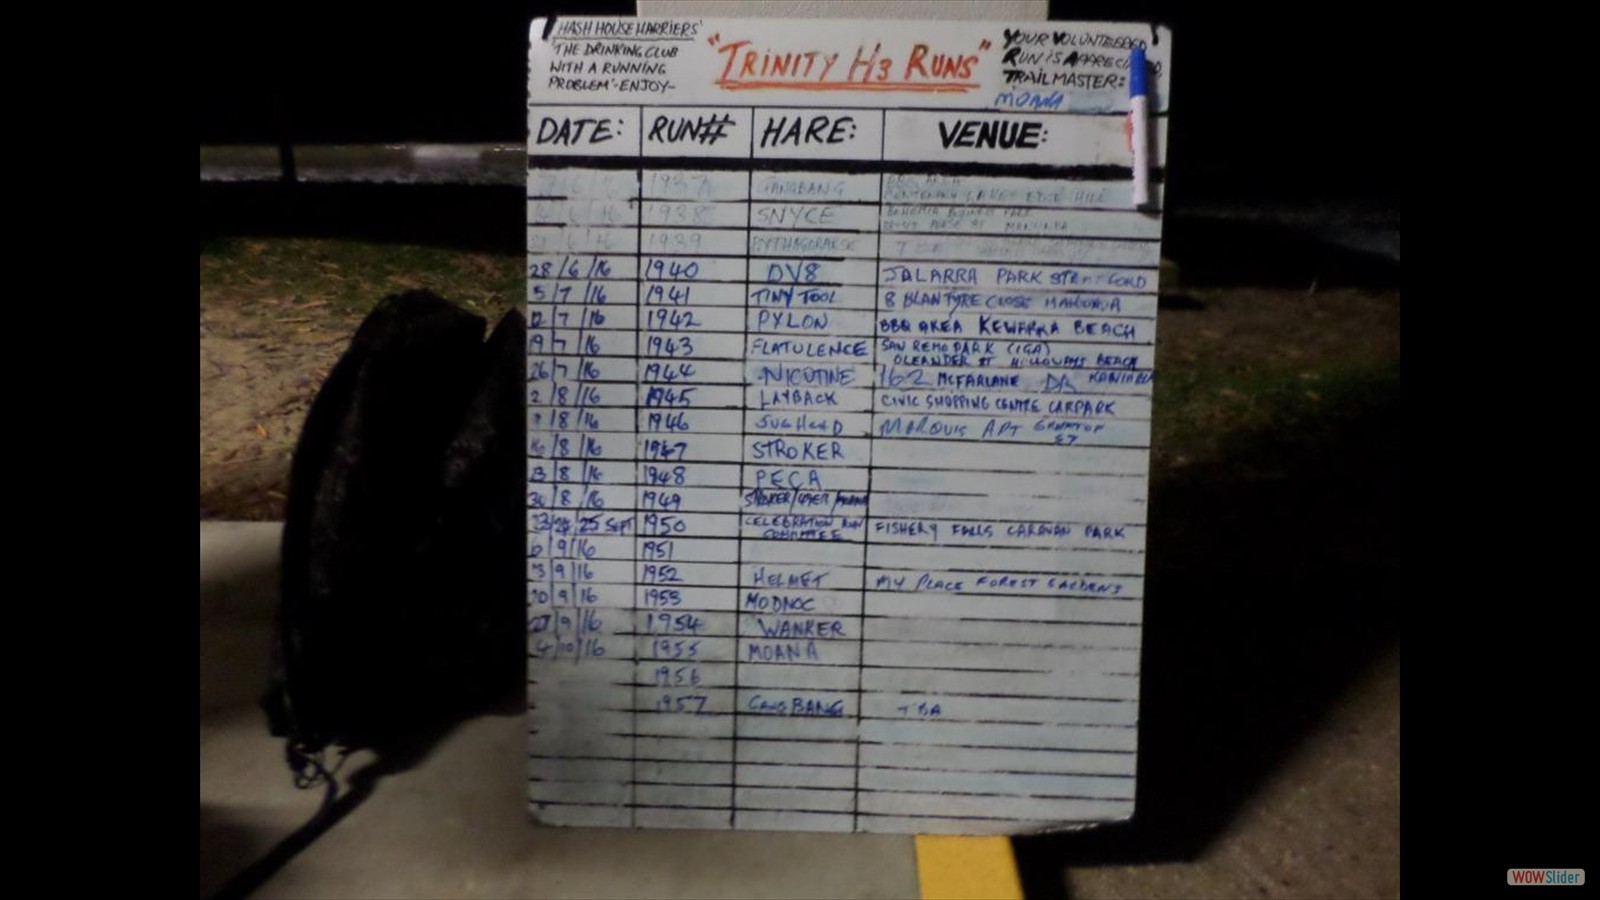 HASH HOUSE HARRIERS'
'THE DRINKING CLUB
WITH A RUNNING
PROBLEM'-ENJOY-
"TRINITY H3 RUNS"
YOUR VOLUNTEERED
RUN IS APPRECIATED,
TRAILMASTER:
MOANA
DATE: RUN# HARE: VENUE:
1937 GANGBANG
LAKES EDGE HILL
1938 SNYCE
MANUNDA
1939
28/6/16 1940 DV8 JALARRA PARK STRATFORD
5/7/16 1941 TINY TOOL 8 BLANTYRE CLOSE MANUNDA
12/7/16 1942 PYLON BBQ AREA KEWARRA BEACH
19/7/16 1943 FLATULENCE SAN REMO PARK (IGA)
OLEANDER ST HOLLOWAYS BEACH
26/7/16 1944 NICOTINE 162 McFARLANE DR
2/8/16 1945 LAYBACK CIVIC SHOPPING CENTRE CARPARK
/8/16 1946 JUGHEAD MARQUIS APT GRAFTON
ST
16/8/16 1947 STROKER
23/8/16 1948 PECA
30/8/16 1949 STROKER/
23/24/25 SEPT 1950 CELEBRATION RUN
COMMITTEE FISHERY FALLS CARAVAN PARK
6/9/16 1951
13/9/16 1952 HELMET MY PLACE FOREST GARDENS
20/9/16 1953 MODNOC
27/9/16 1954 WANKER
4/10/16 1955 MOANA
1956
1957 GANGBANG TBA
WOWSlider